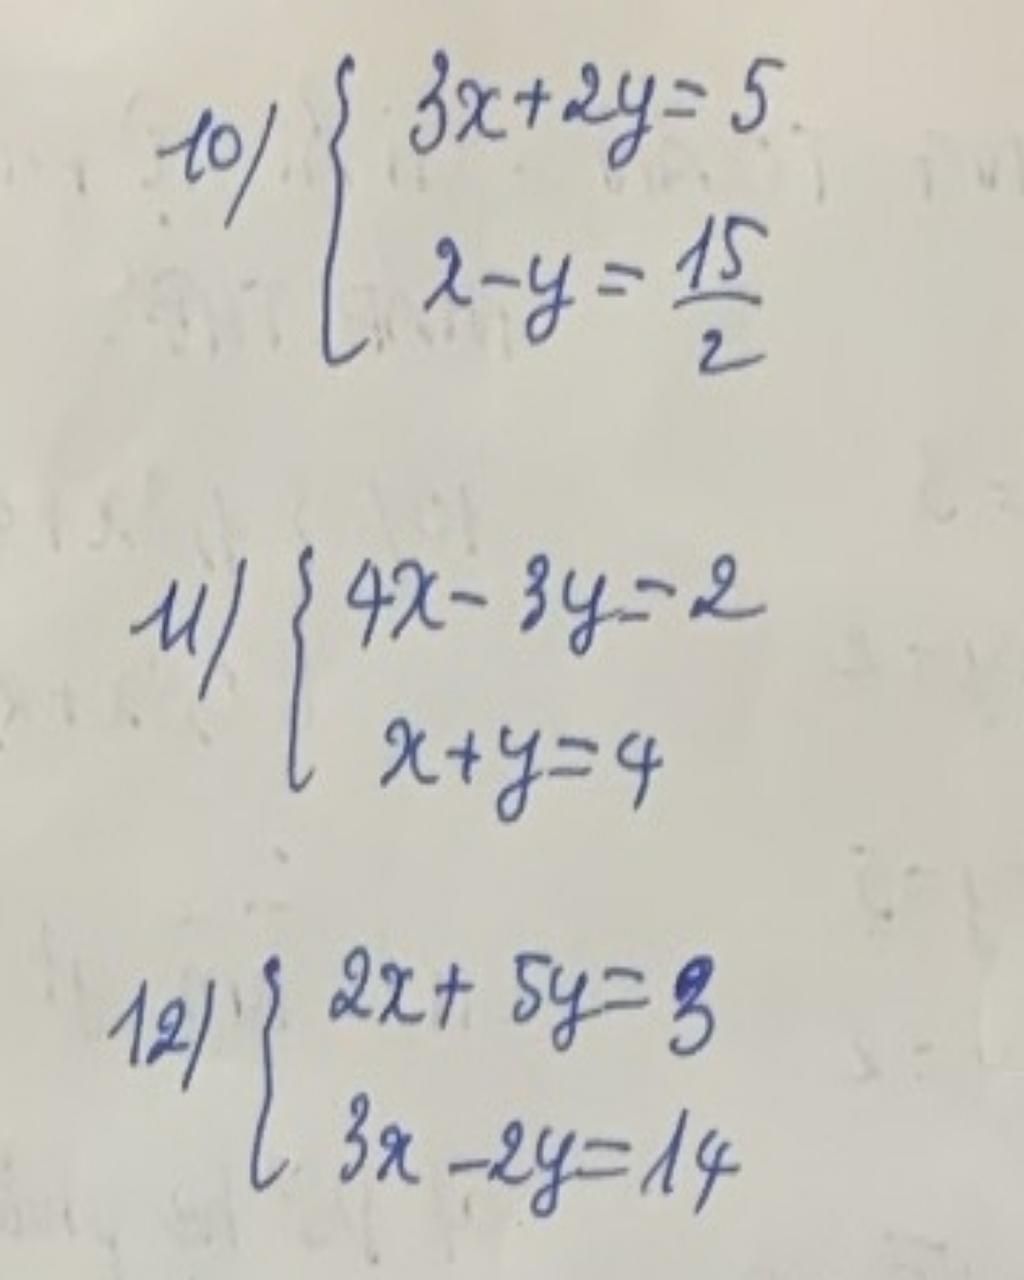 10) { 3x+2y=5
2-y = 15/2
11) { 4x-3y=2
x+y=4
12) { 2x+5y=3
3x-2y=14